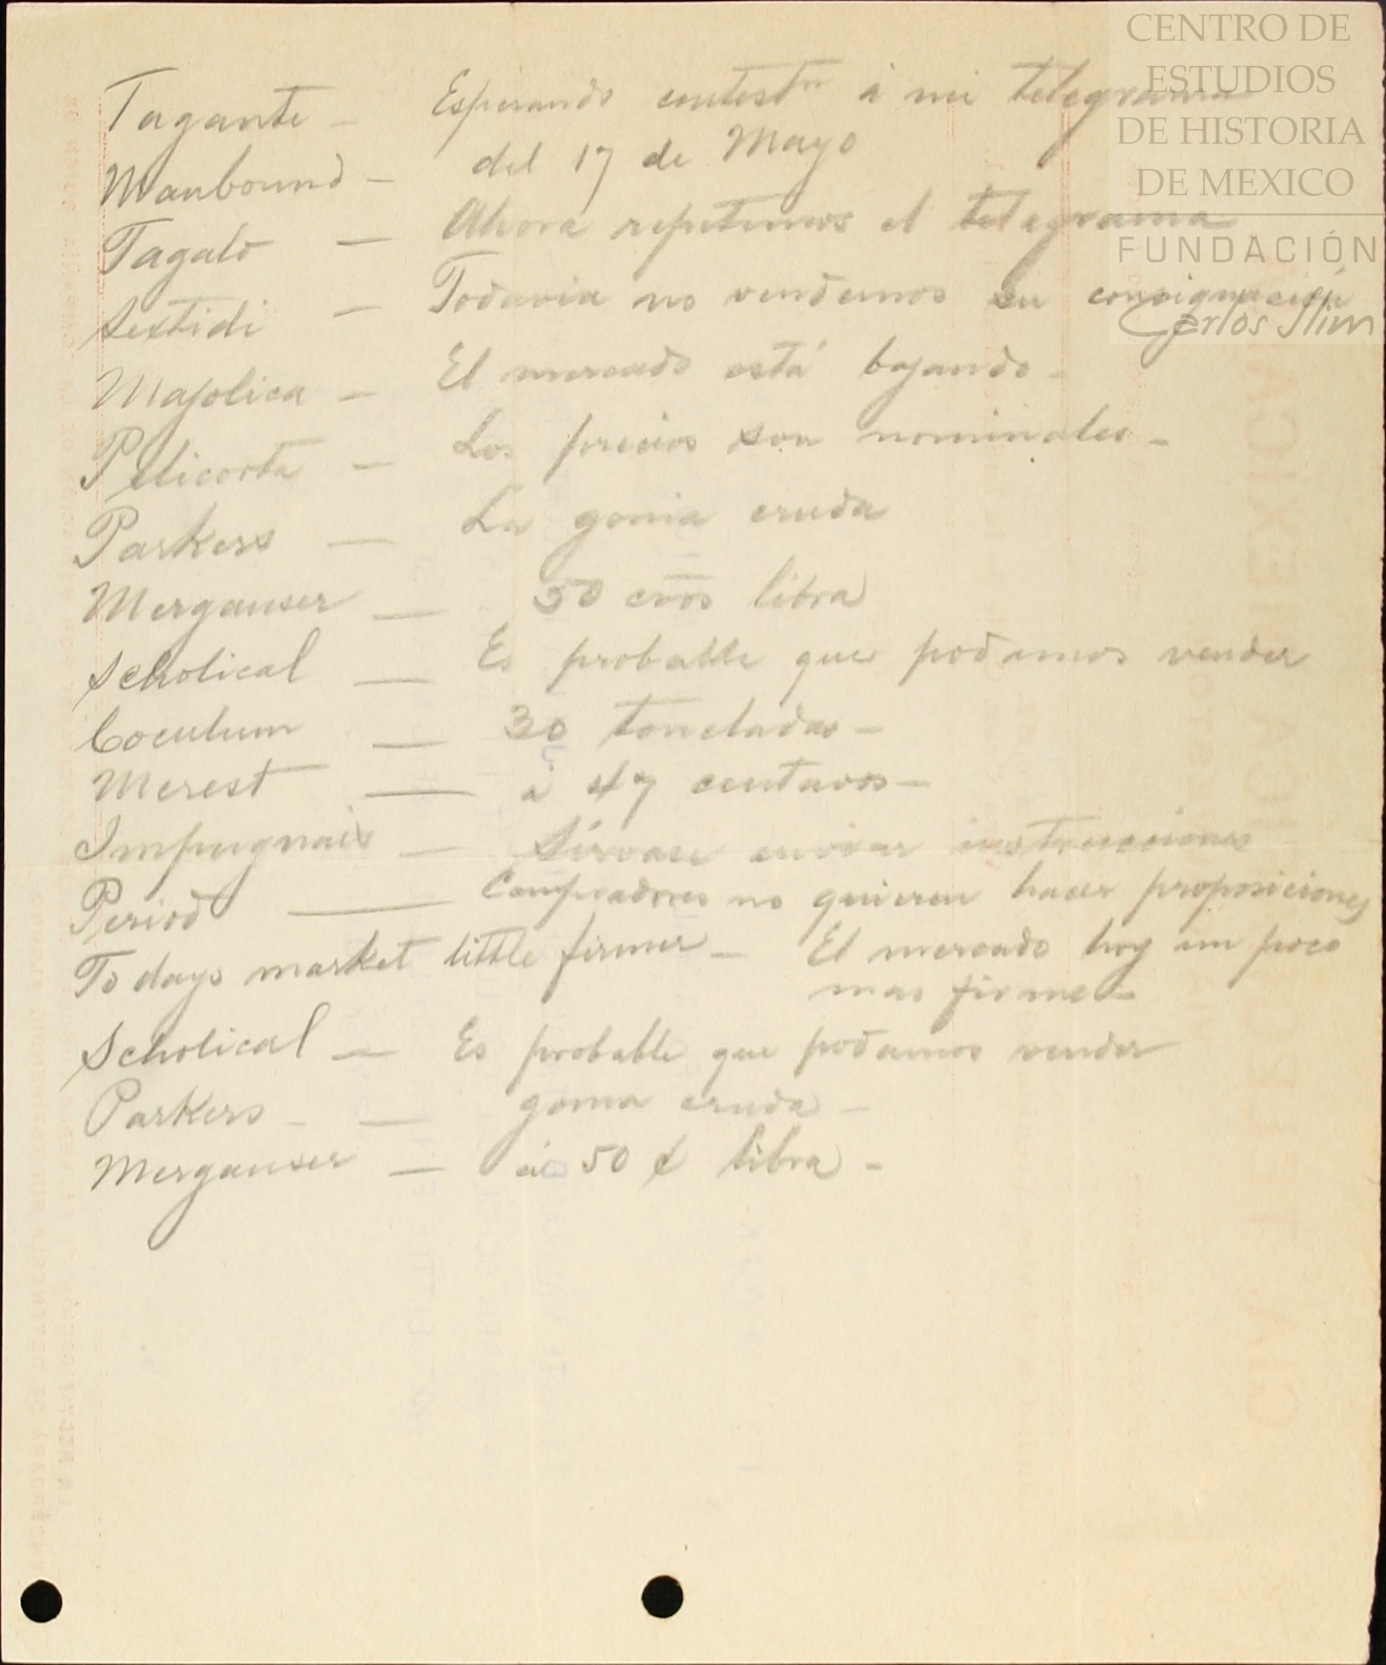 Tagante — Esperando contestn á mi telegrama
Manbound — del 17 de Mayo
Tagalo — Ahora repetimos el telegrama
Sextidi — Todavia no vendemos su consignación
Majolica — El mercado está bajando —
Pelicorta — Los precios son nominales —
Parkers — La goma cruda
Merganser — 50 cvos libra
Scholical — Es probable que podamos vender
Coculum — 30 toneladas —
Merest — á 47 centavos —
Impugnais — Sirvase enviar instrucciones
Period — Compradores no quieren hacer proposiciones
To days market little firmer — El mercado hoy un poco
mas firme —
Scholical — Es probable que podamos vender
Parkers — goma cruda —
Merganser — á 50 ¢ libra —
CENTRO DE
ESTUDIOS
DE HISTORIA
DE MEXICO
FUNDACIÓN
Carlos Slim